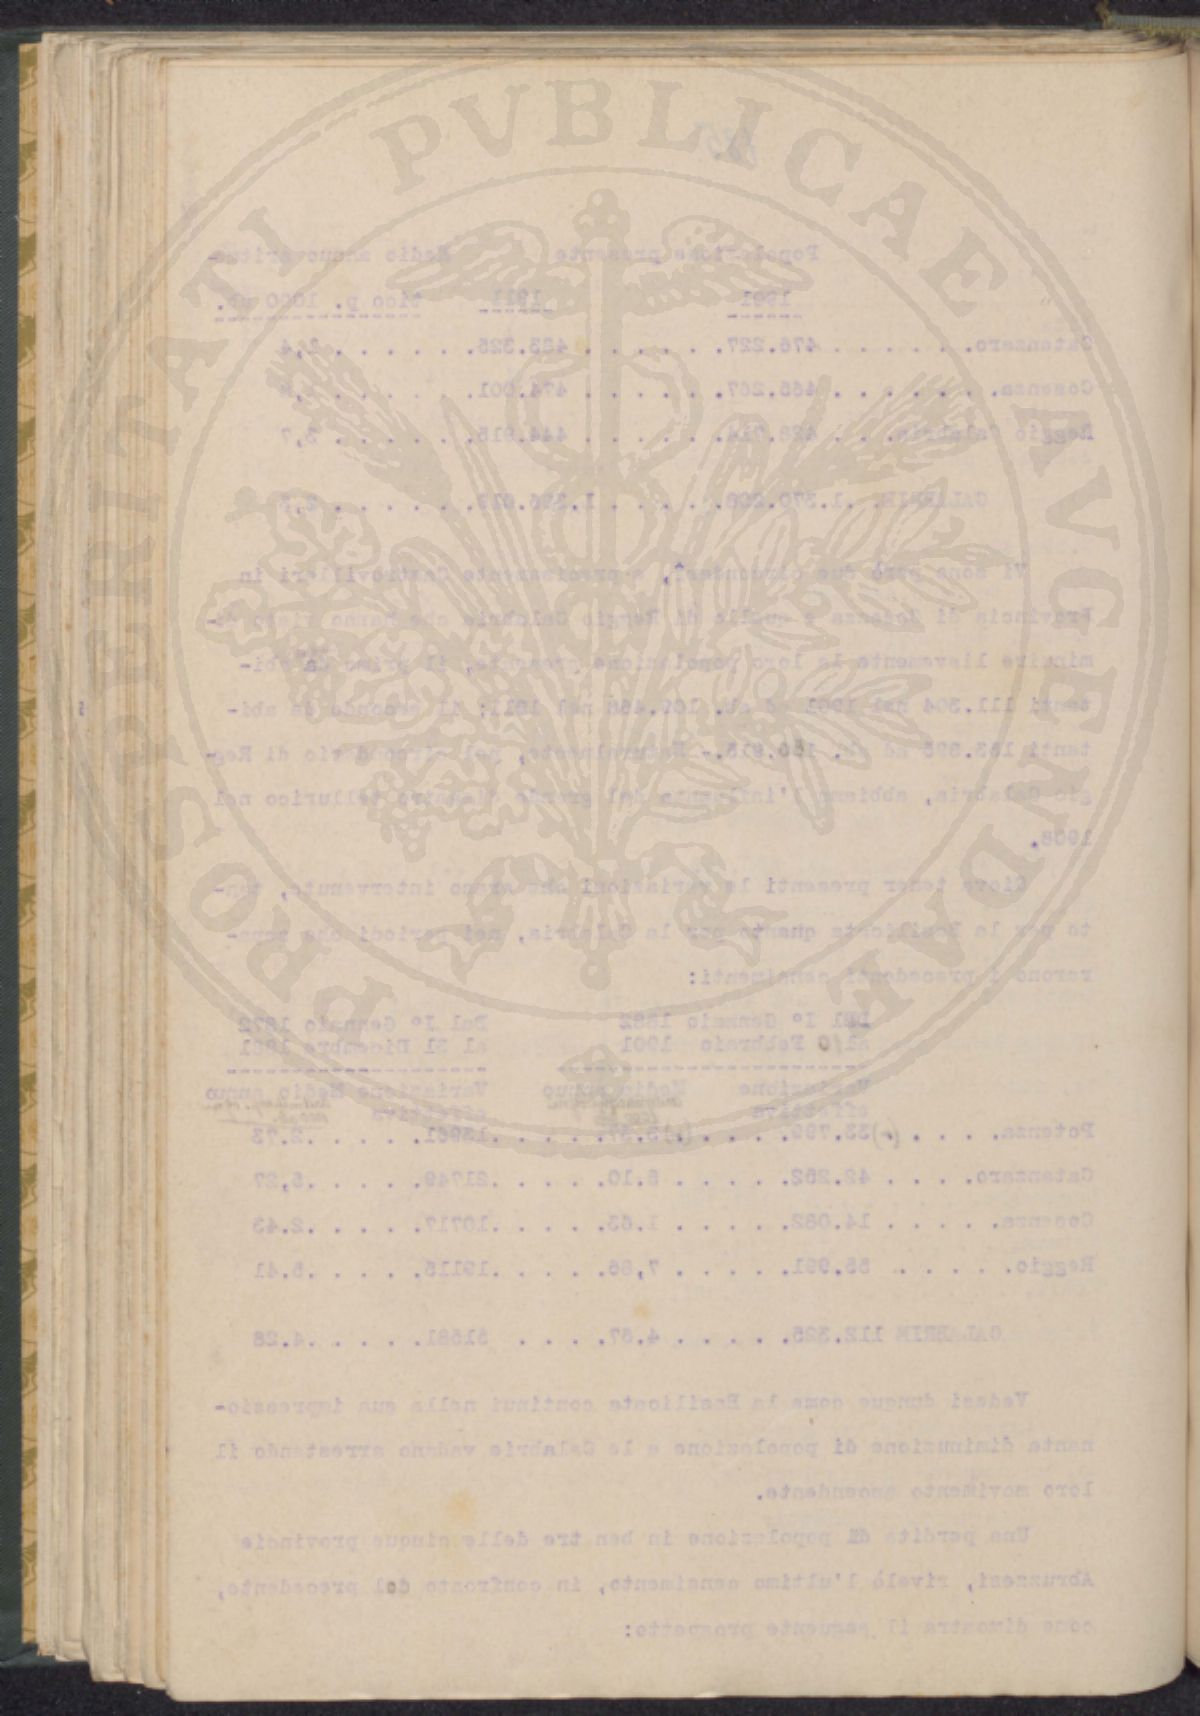 PROSPERITATI PVBLICAE AVGENDAE
Popolazione presente Medio annuo
1901 1911 tico p. 1000 ab.
Catanzaro. . . . . . 476.227. . . . . . . 483.325. . . . . .
Cosenza. . . . . . . 465.267. . . . . . 474.001. . . . . .
Reggio Calabria. . . 428.714. . . . . . 444.915. . . . . . 3,7
Vi sono però due circondari, e precisamente Castrovillari in
Provincia di Cosenza e quello di Reggio Calabria che hanno visto di-
minuire lievemente la loro popolazione presente, il primo da abi-
tanti 111.304 nel 1901 ad ab. 109.468 nel 1911; il secondo da abi-
tanti ad ab. Naturalmente, nel circondario di Reg-
gio Calabria, abbiamo l'influenza del grande disastro tellurico nel
1908.
Giova tener presenti le variazioni che erano intervenute, tan-
to per la Basilicata quanto per la Calabria, nei periodi che sepa-
rarono i precedenti censimenti:
Dal I° Gennaio 1882 Dal I° Gennaio 1872
al 10 Febbraio 1901 al 31 Dicembre 1881
Variazione Medio annuo Variazione Medio annuo
effettiva effettiva
Potenza. . . . . (-)33.799. . . . . 13961. . . . . .2.73
Catanzaro. . . . 42.262. . . . . 5.10. . . . . .21749. . . . . .5,27
Cosenza. . . . . 14.082. . . . . 1.63. . . . . .10717. . . . . .2.43
Reggio. . . . . 55.991. . . . . 7,86. . . . . .19115. . . . . .5.41
CALABRIE 112.325. . . . . 4.67. . . . 51581. . . . . .4.28
Vedesi dunque come la Basilicata continui nella sua impressio-
nante diminuzione di popolazione e le Calabrie vadano arrestando il
loro movimento ascendente.
Una perdita di popolazione in ben tre delle cinque provincie
Abruzzesi, rivelò l'ultimo censimento, in confronto del precedente,
come dimostra il seguente prospetto: